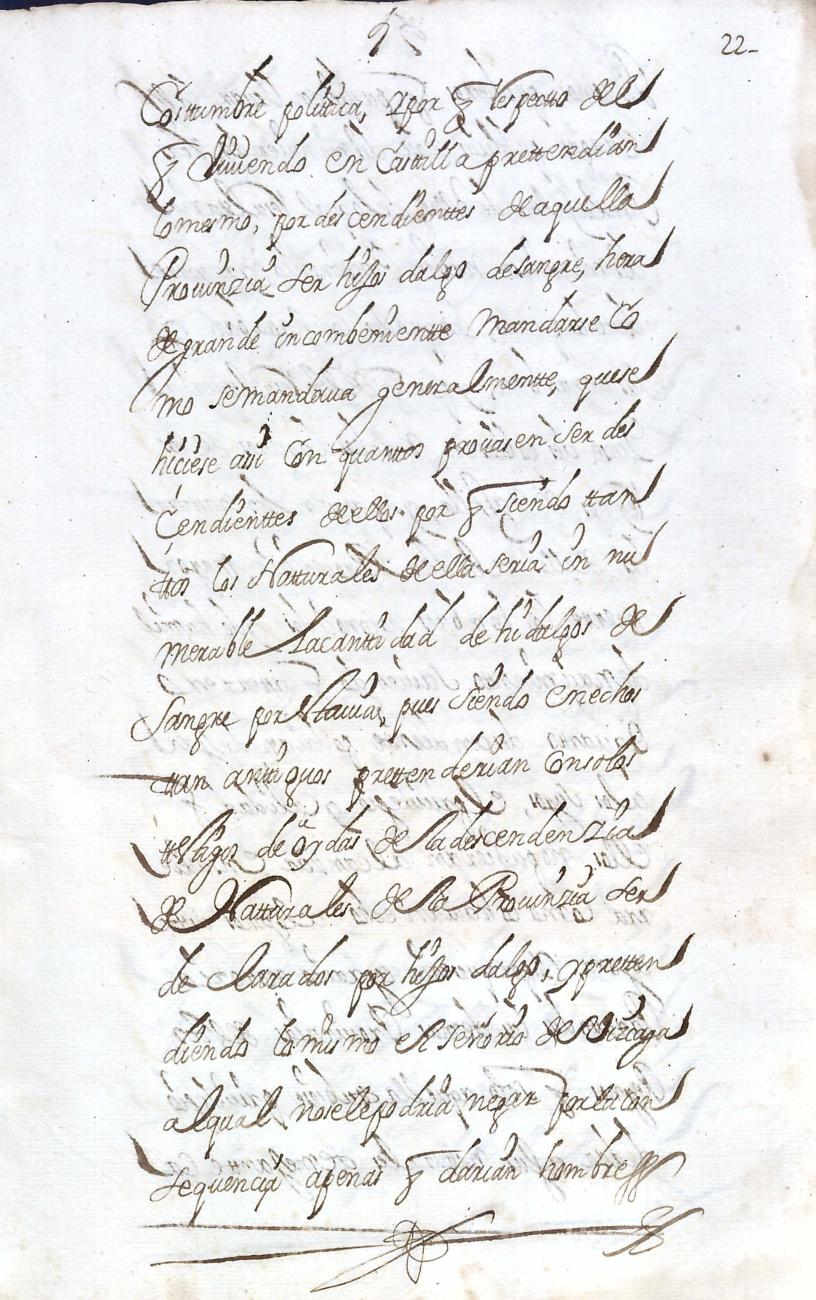 22-
Costumbre politica, y por q respecto de los
q viviendo en Castilla prettendian
lo mesmo, por descendienttes de aquella
Provinzia ser hijos dalgo de sangre, hera
de grande incombenientte Mandarse Co
mo se mandava generalmentte, que se
hiciese assi Con quanttos provasen ser des
Cendienttes de ellos por q siendo ttan
ttos los Natturales de ella seria in nu
merable La canttidad de hidalgos de
Sangre por pues siendo en echos
ttan antiguos prettenderian Con solos
ttestigos de oydas de la descendenzia
de Natturales de la Provinzia ser
de Clarados por hijos dalgo, y pretten
diendo lo mismo el señorio de Vizcaya
al qual no se le podria negar por la con
sequencia apenas q darian hombres